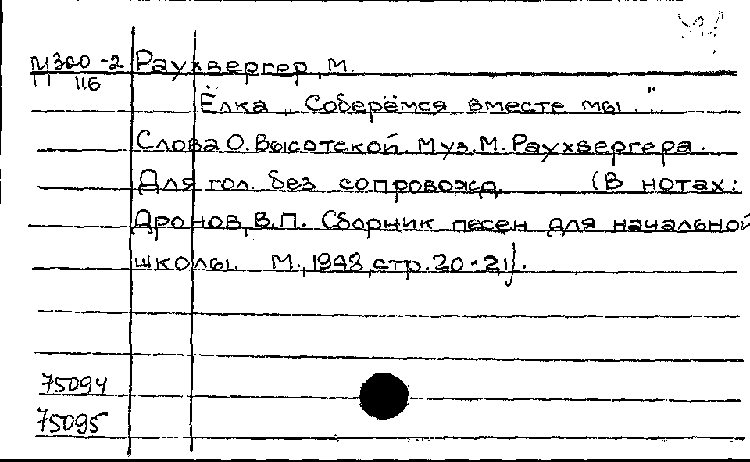 М360-2 Раухвергер, М.
П 116
Ёлка „Соберёмся вместе мы."
Слова О. Высотской. Муз. М. Раухвергера.
Для гол. без сопровожд. (В нотах:
Дронов, В.П. Сборник песен для начальной
школы. М., 1948, стр. 20-21).
75094
75095